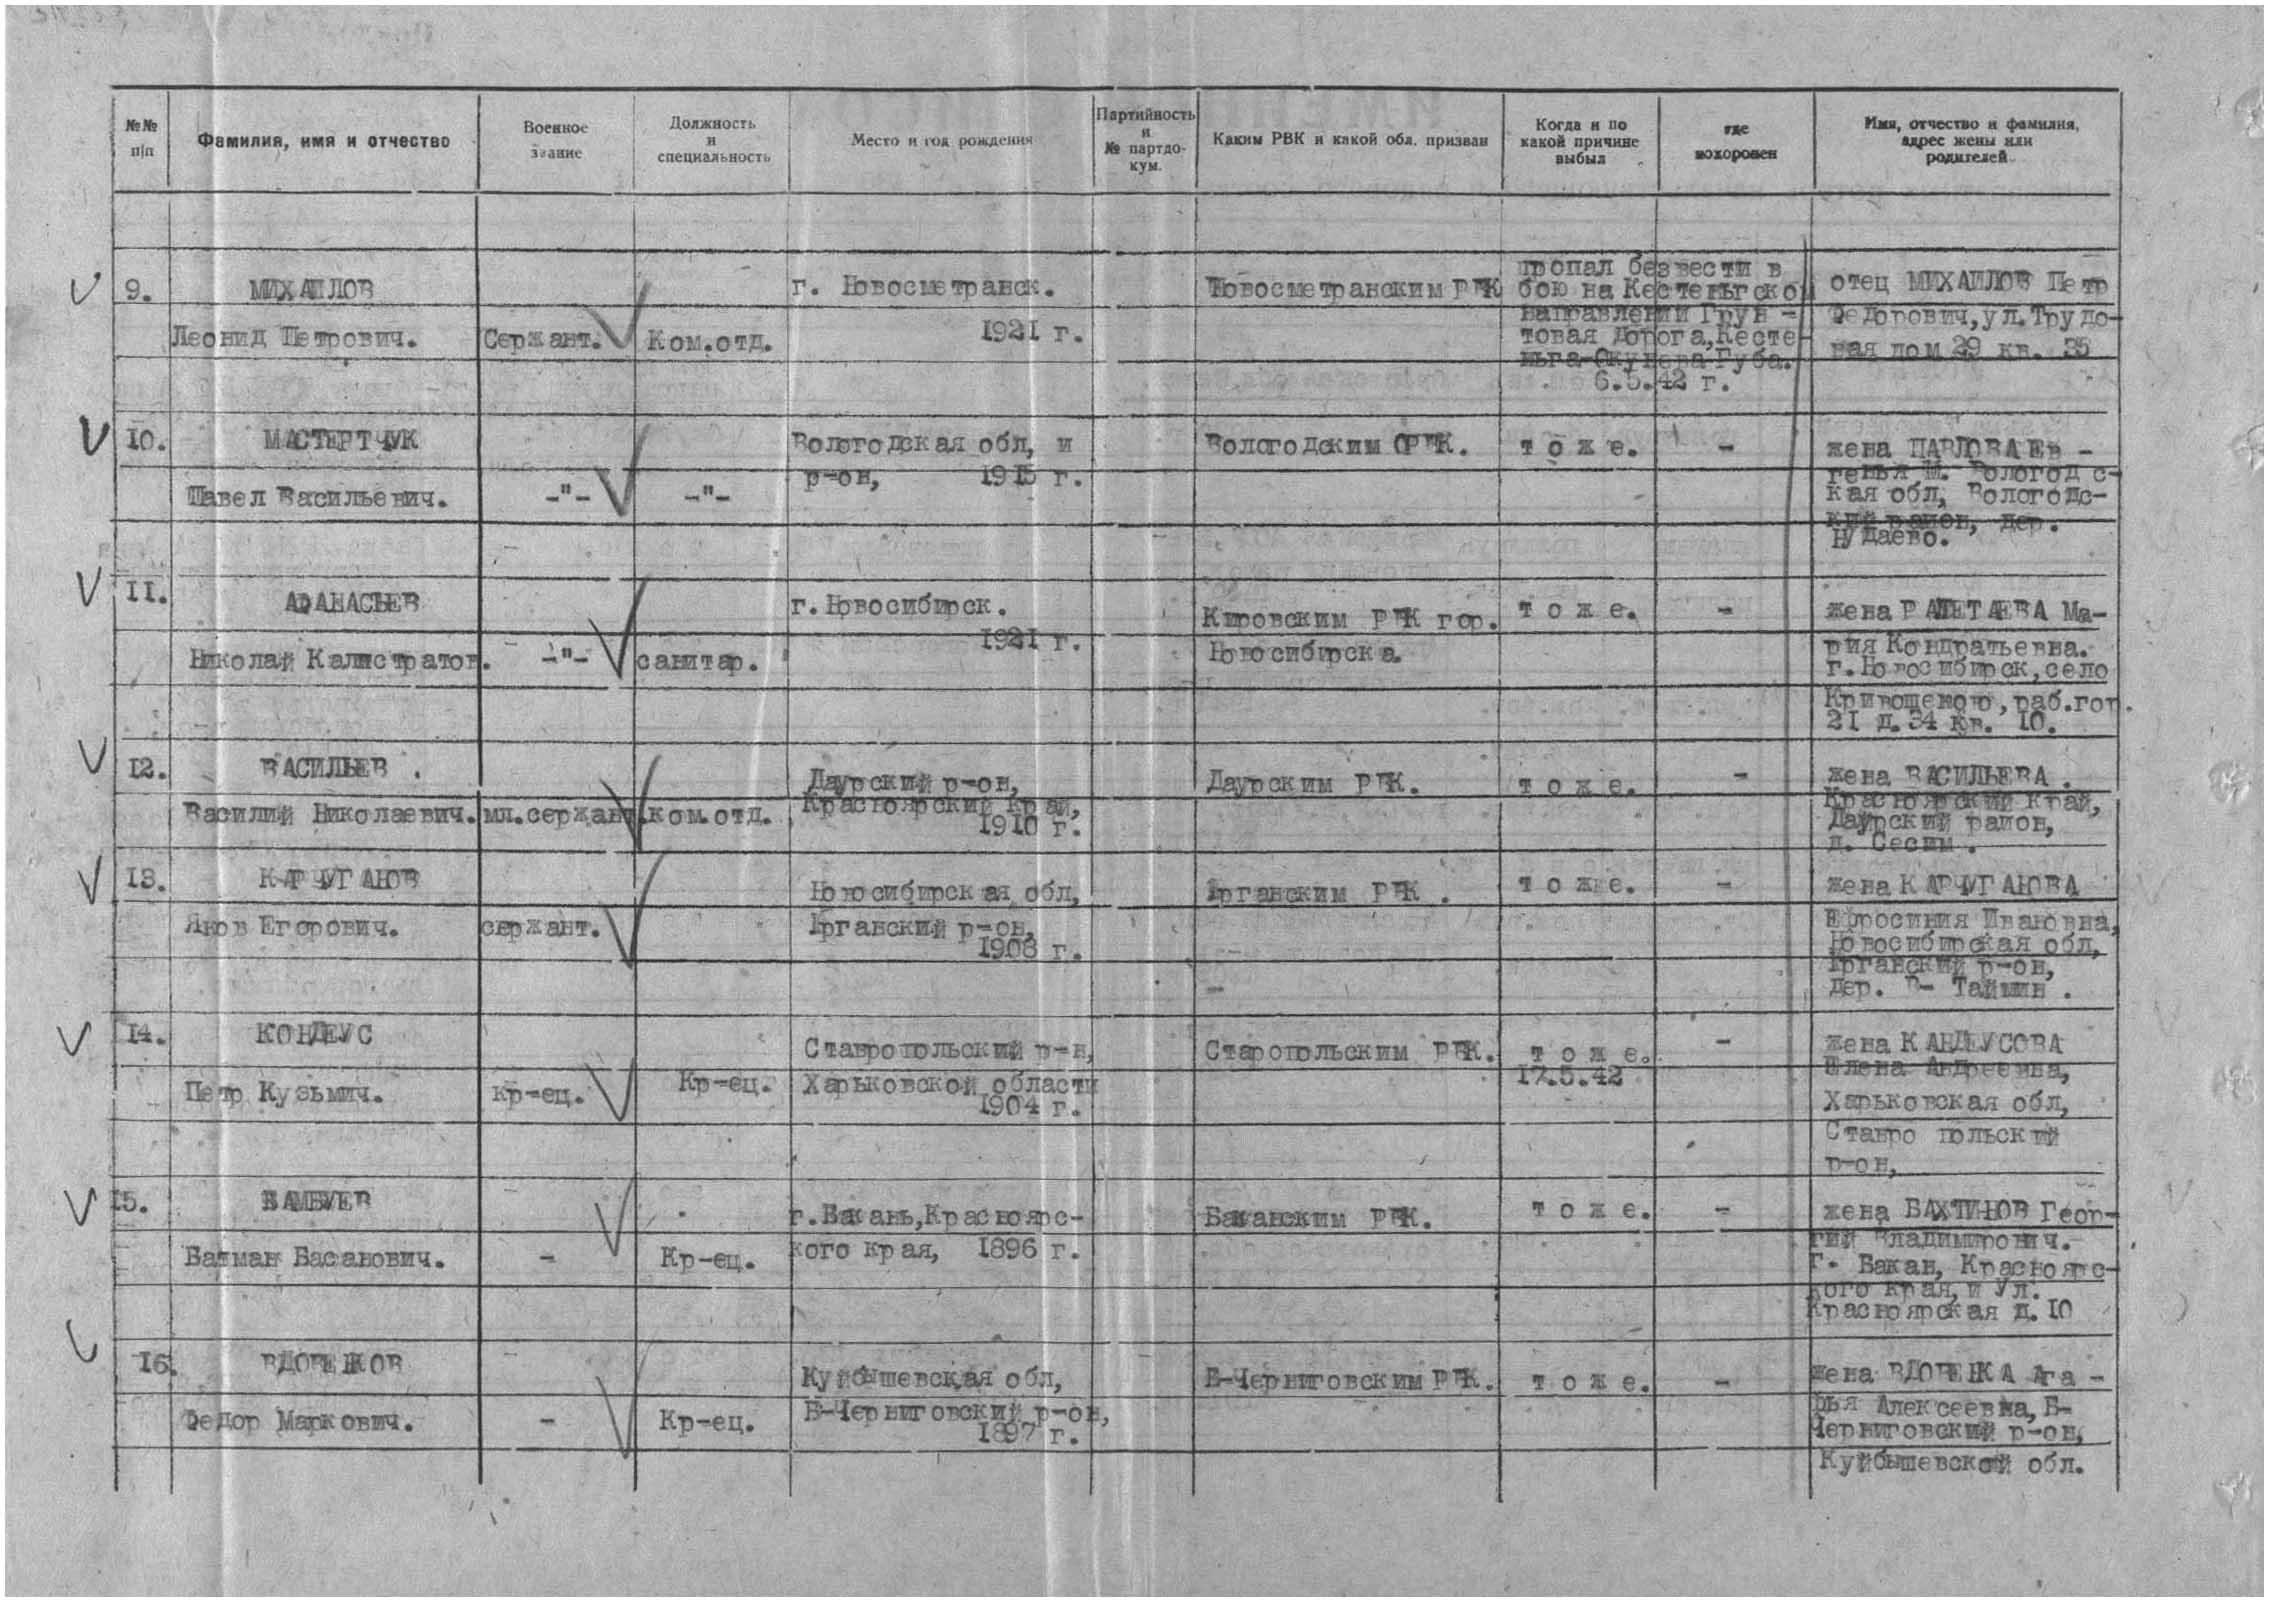 №№ п/п
Фамилия, имя и отчество
Военное звание
Должность и специальность
Место и год рождения
Партийность и № партдокум.
Каким РВК и какой обл. призван
Когда и по какой причине выбыл
где похоронен
Имя, отчество и фамилия, адрес жены или родителей
9.
МИХАИЛОВ
Леонид Петрович.
Сержант.
Ком.отд.
г. Новосметранск.
1921 г.
Новосметранским РВК
пропал безвести в
бою на Кестеньгском
направлении Грун -
товая дорога,Кесте-
ньга-Окунева Губа.
6.5.42 г.
отец МИХАИЛОВ Петр
Федорович,ул.Трудо-
вая дом 29 кв. 35
10.
МАСТЕРТЧУК
Павел Васильевич.
-"-
-"-
Вологодская обл, и
р-он, 1915 г.
Вологодским ОРВК.
т о ж е.
-
жена ПАВЛОВА Ев -
генья М. Вологод с-
кая обл, Вологодс-
кий район, дер.
11.
АФАНАСЬЕВ
Николай Калистратов.
-"-
санитар.
г.Новосибирск.
1921 г.
Кировским РВК гор.
Новосибирска.
т о ж е.
-
жена Ма-
рия Кондратьевна.
г.Новосибирск,село
Кривощеково,раб.гор.
21 д.34 кв. 10.
12.
ВАСИЛЬЕВ .
Василий Николаевич.
мл.сержант.
ком.отд.
Даурский р-он,
Красноярский край,
1910 г.
Даурским РВК.
т о ж е.
-
жена ВАСИЛЬЕВА .
Красноярский край,
Даурский район,
д. Сесим .
13.
КАРЧУГАНОВ
Яков Егорович.
сержант.
Новосибирская обл,
Ирганский р-он,
1908 г.
Ирганским РВК .
т о ж е.
-
жена КАРЧУГАНОВА
Ефросиния Ивановна,
Новосибирская обл,
Ирганский р-он,
дер. В- Таймин .
14.
КОНДЕУС
Петр Кузьмич.
Кр-ец.
Кр-ец.
Ставропольский р-н,
Харьковской области
1904 г.
Старопольским РВК.
т о ж е.
17.5.42
-
жена КАНДЕУСОВА
Елена Андреевна,
Харьковская обл,
Ставро польский
р-он,
15.
БАМБУЕВ
Батман Басанович.
-
Кр-ец.
г.Бакань,Красноярс-
кого края, 1896 г.
Баканским РВК.
т о ж е.
-
жена БАХТИНОВ Геор-
гий Владимирович.
г. Бакан, Красноярс-
кого края, и Ул.
Красноярская д.10
16.
ВДОВЕНКОВ
Федор Маркович.
-
Кр-ец.
Куйбышевская обл,
Б-Черниговский р-он,
1897 г.
Б-Черниговским РВК.
т о ж е.
-
жена ВДОВЕНКА Ага -
фья Алексеевна, Б-
Черниговский р-он,
Куйбышевской обл.